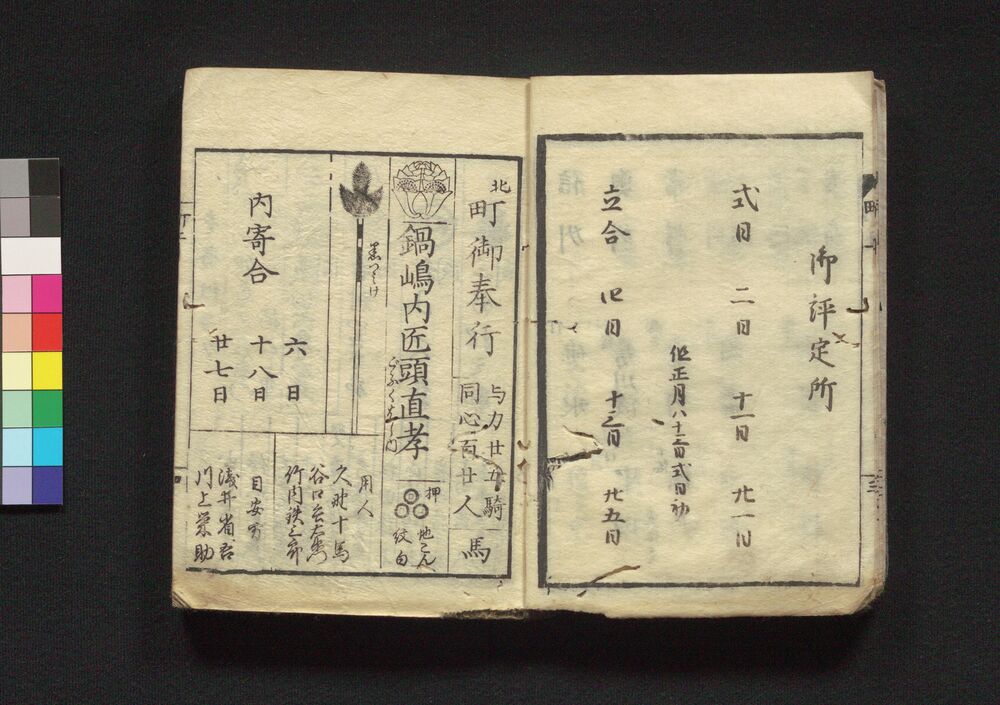 御評定所
式日 二日 十一日 廿一日
立合 四日 十三日 廿五日
但正月ハ十一日式日初
北
町御奉行
与力廿五騎
同心百廿人
馬
鍋嶋内匠頭直孝
押
地こん
紋白
黒つゝけ
用人
谷口
竹内鉄三郎
内寄合
六日
十八日
廿七日
目安方
浅井省吾
川上栄助